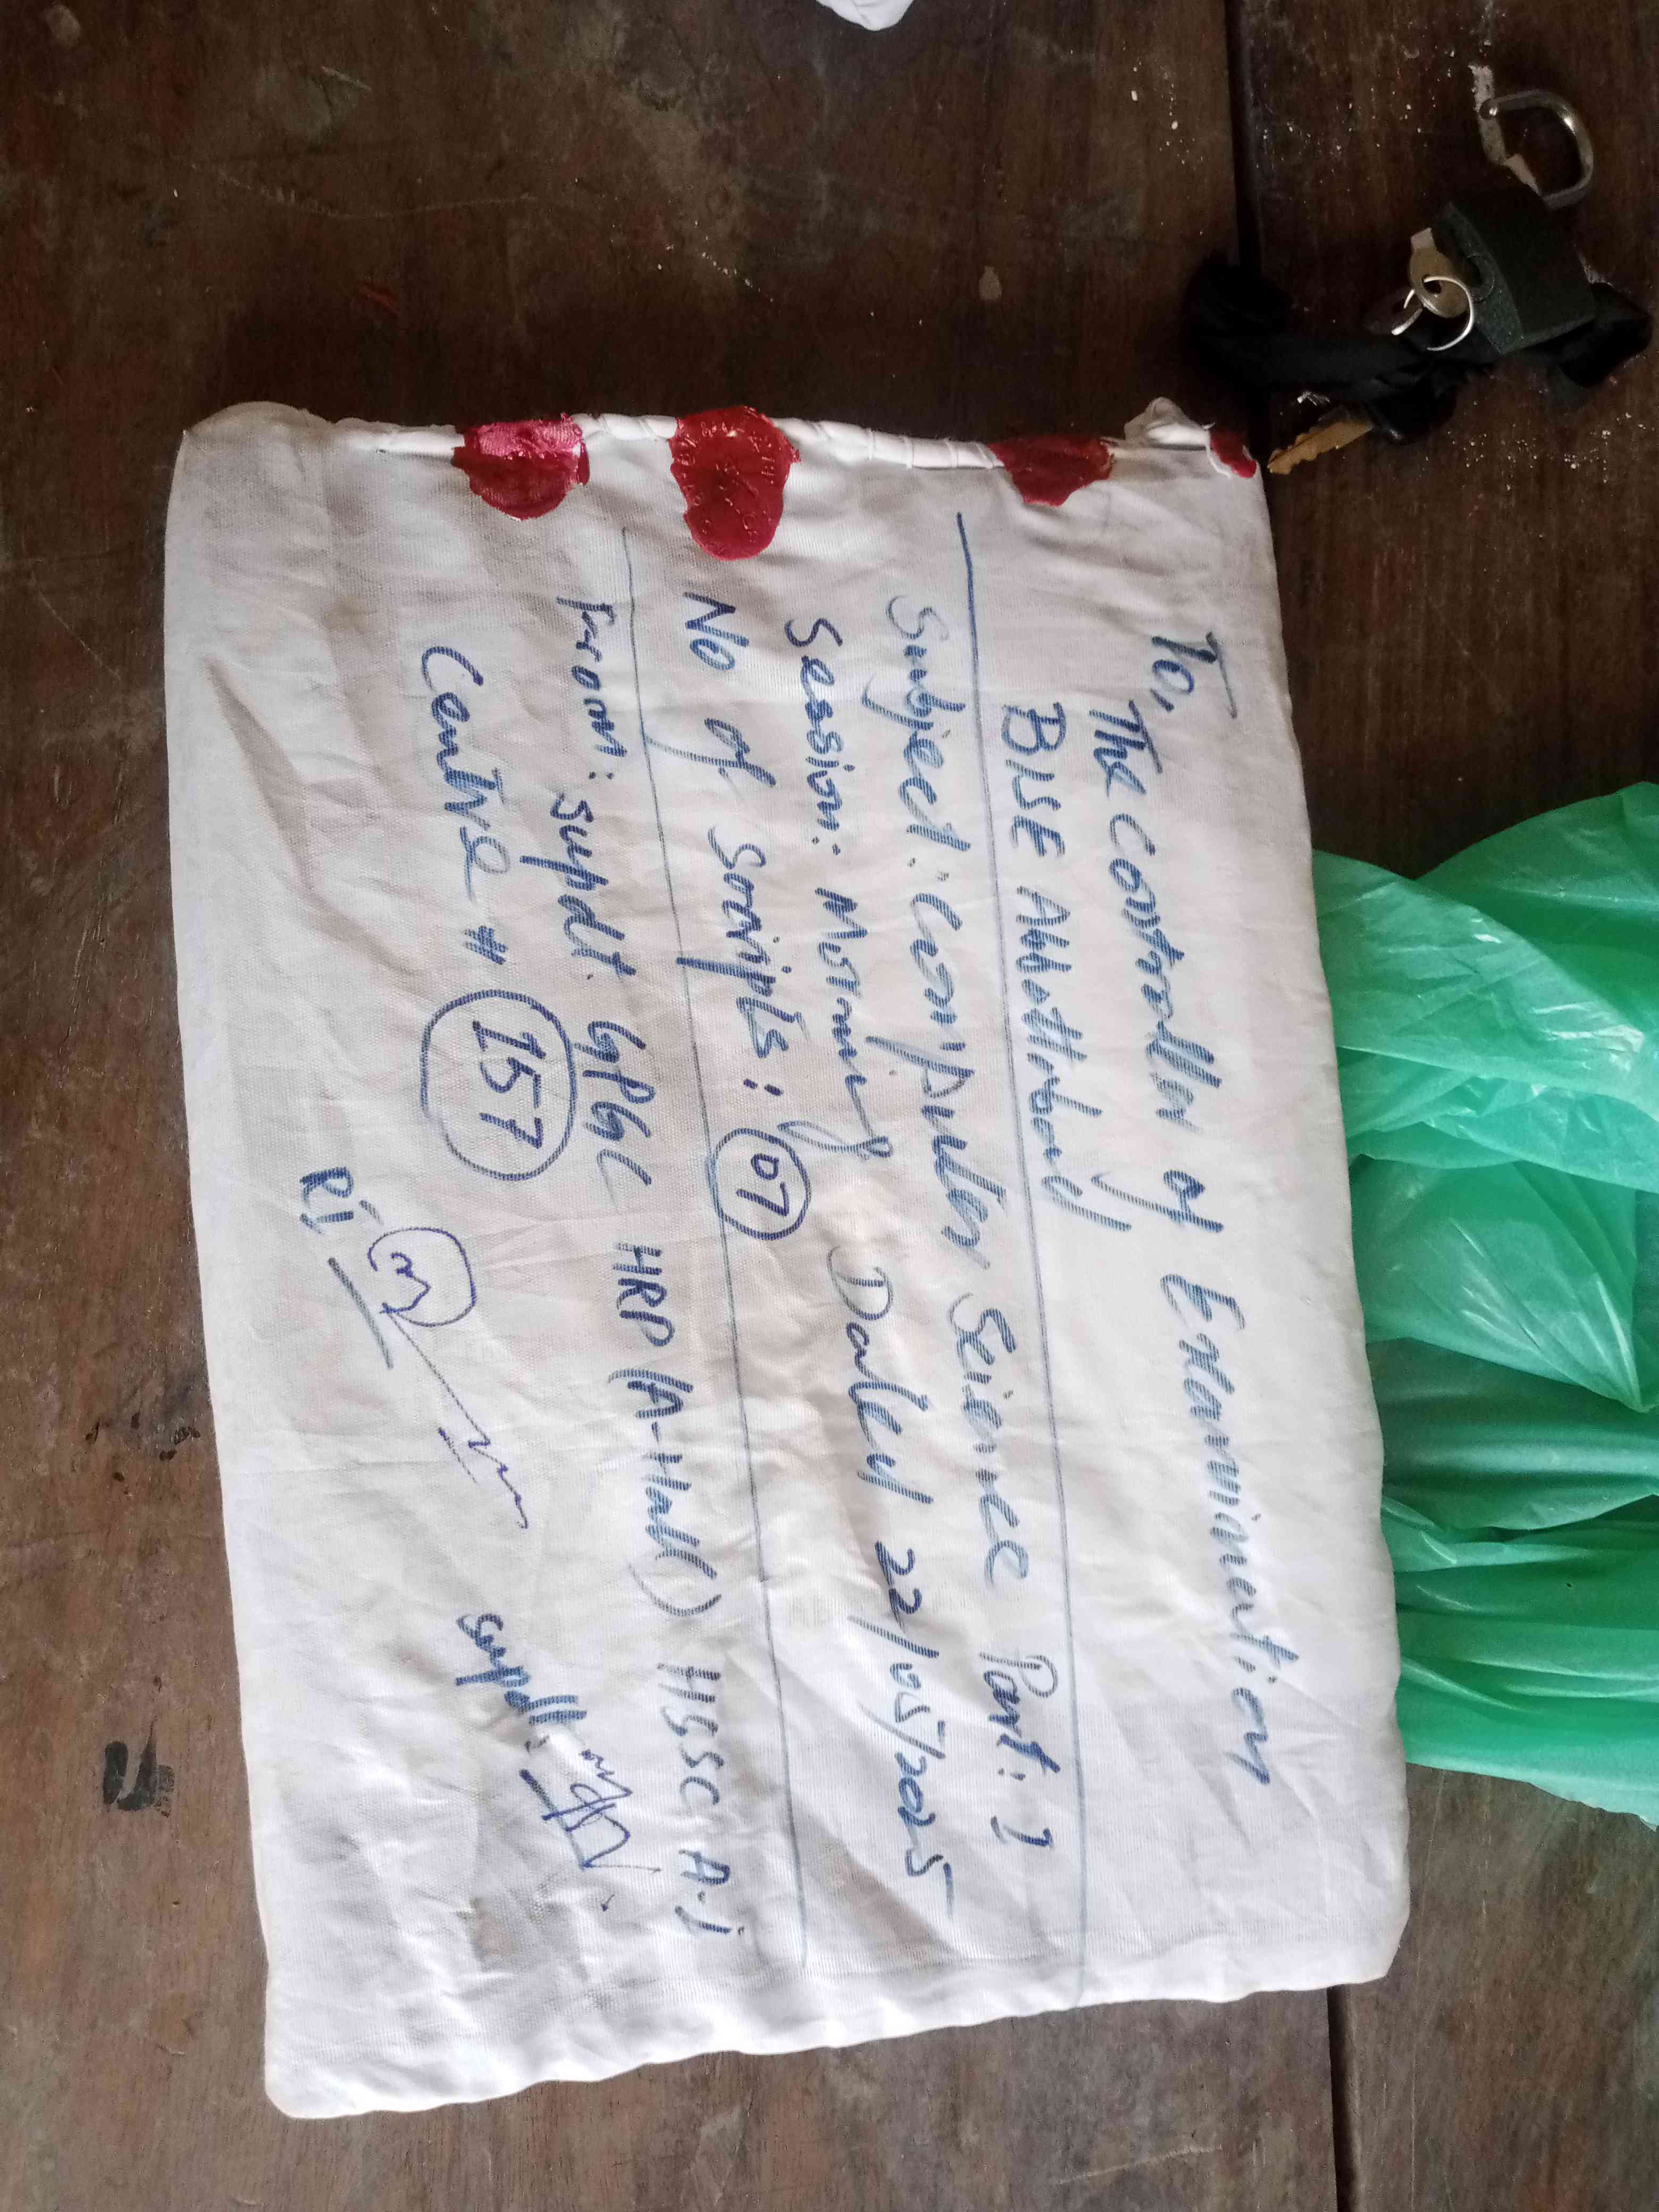 To,
The Controller of Examination
BISE Abbottabad
Subject: Computer Science Part: I
Session: Morning Dated 22/05/2025
No of Scripts: 07
From: Supdt. GPGC HRP (A-Hall) HSSC A-I
Centre # 157
RI
Supdt: